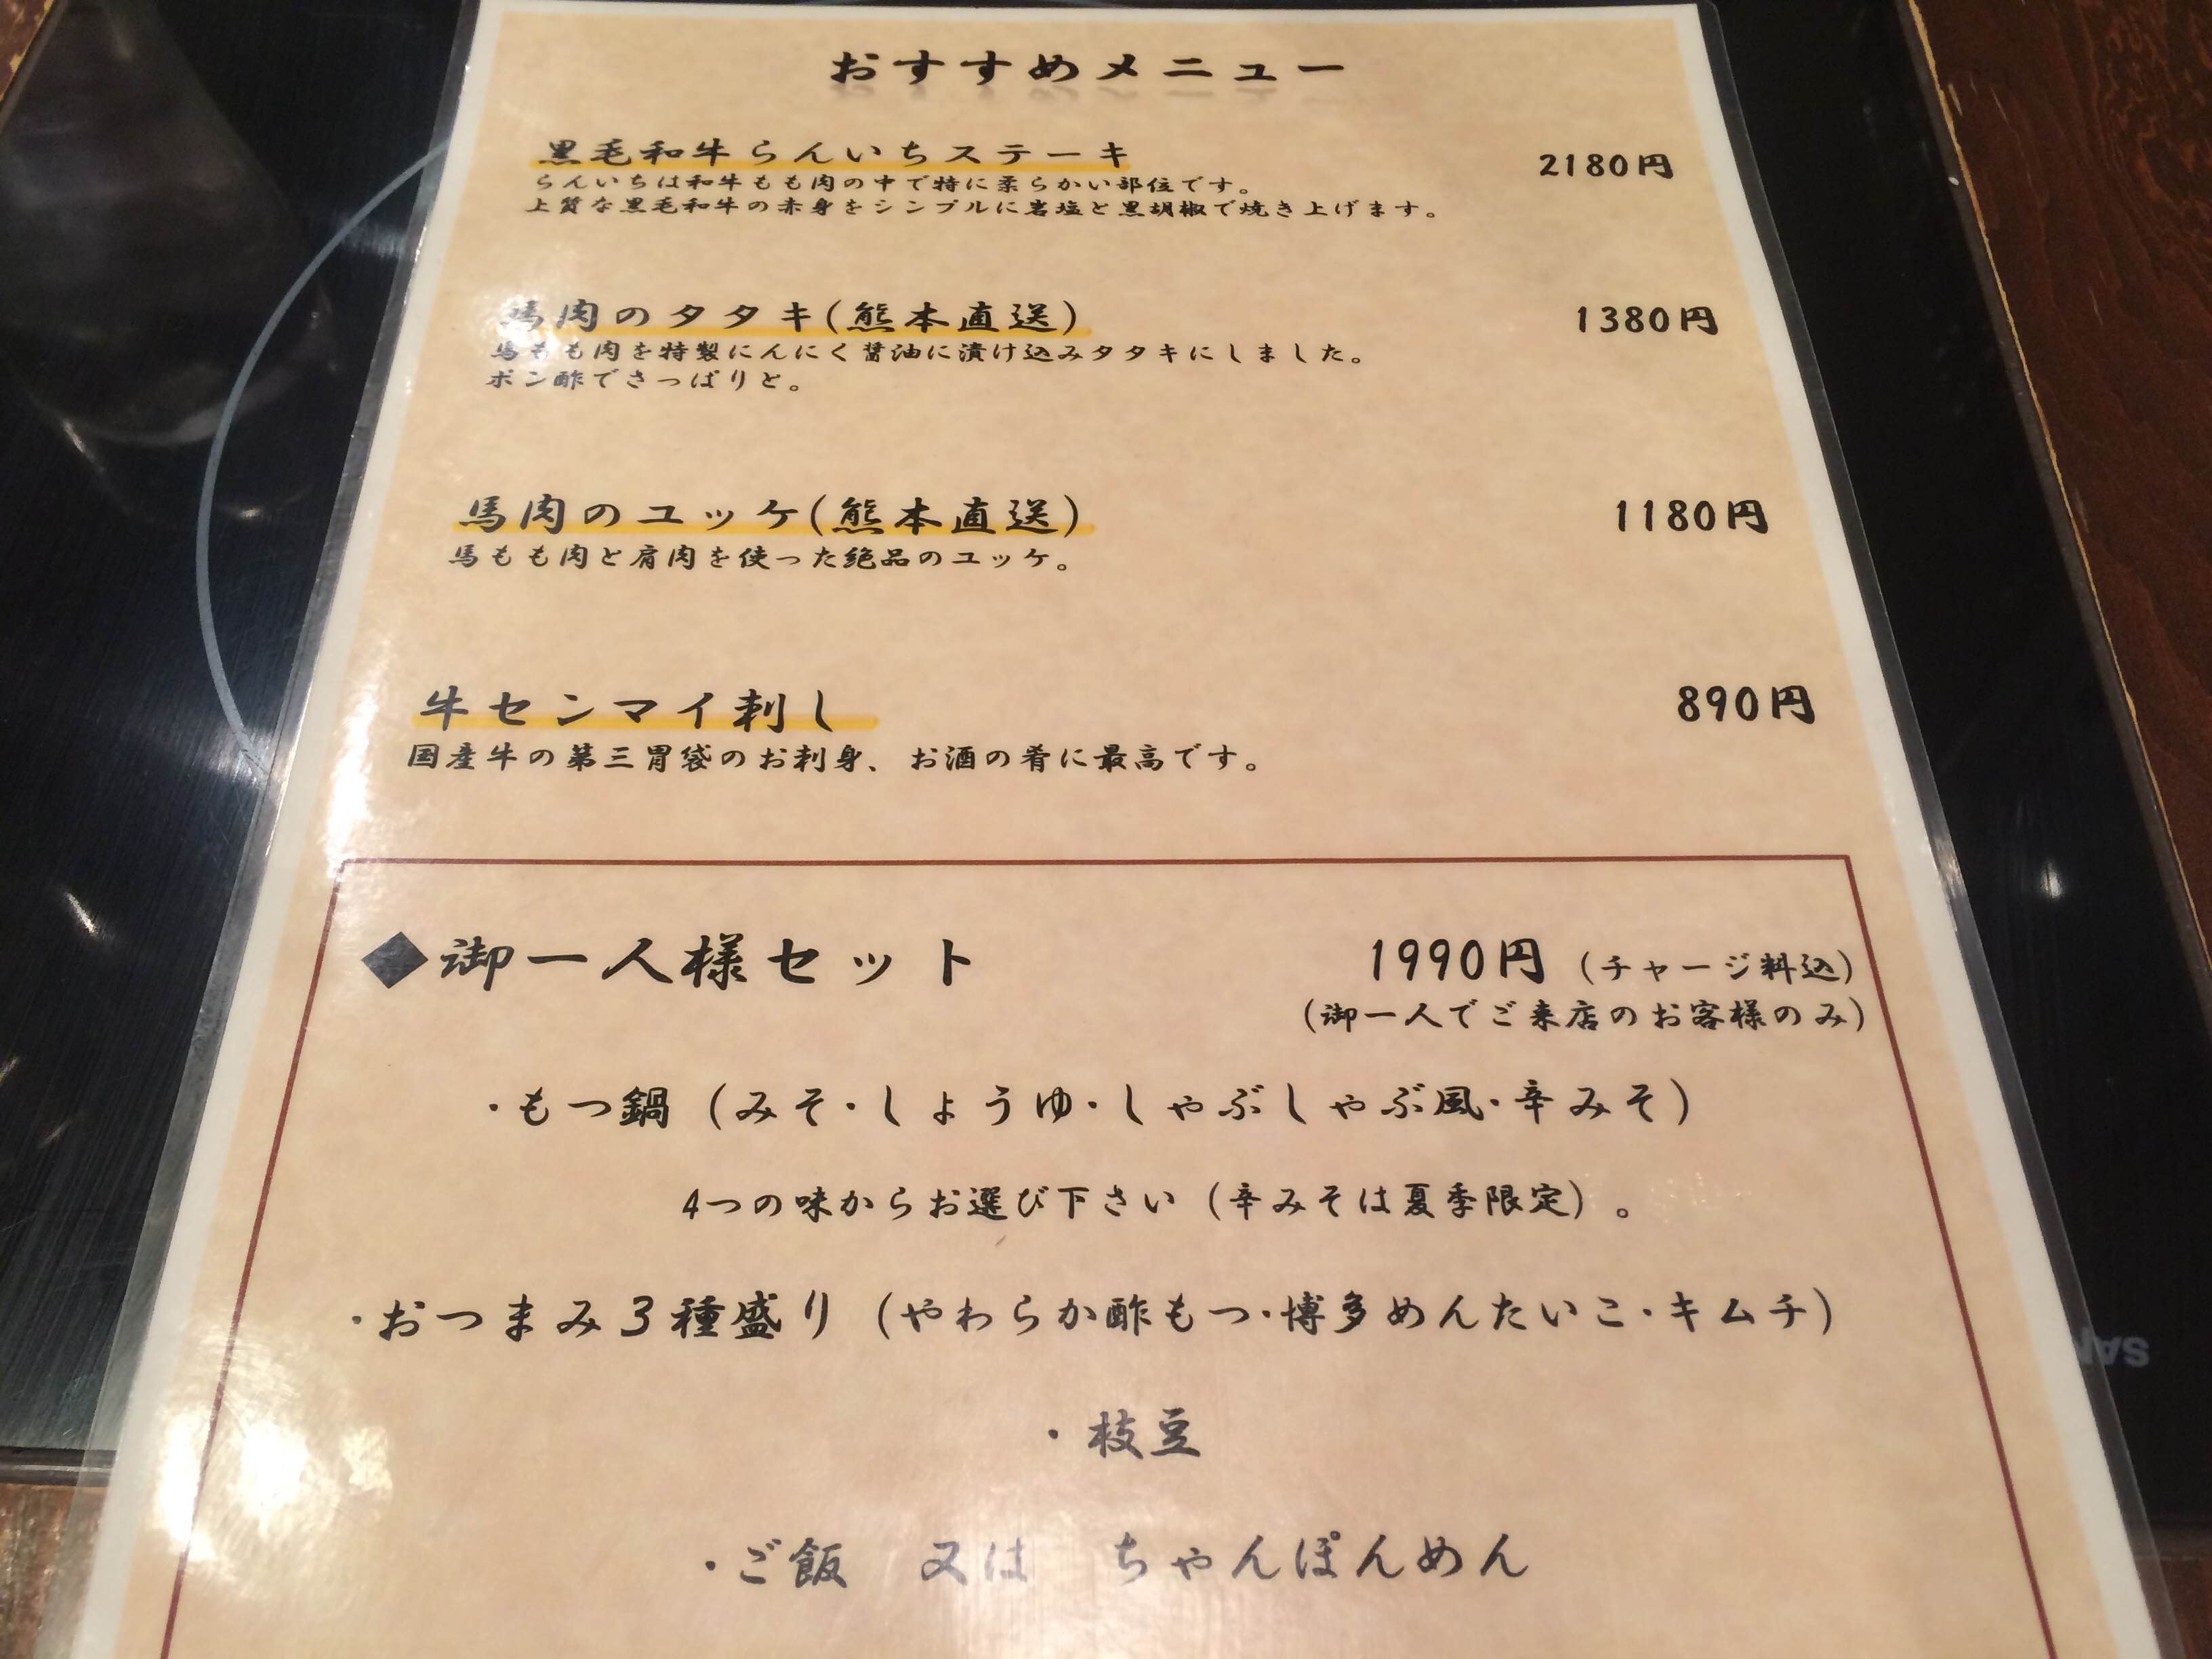 おすすめメニュー
黒毛和牛らんいちステーキ 2180円
らんいちは和牛もも肉の中で特に柔らかい部位です。
上質な黒毛和牛の赤身をシンプルに岩塩と黒胡椒で焼き上げます。
馬肉のタタキ(熊本直送) 1380円
馬もも肉を特製にんにく醤油に漬け込みタタキにしました。
ポン酢でさっぱりと。
馬肉のユッケ(熊本直送) 1180円
馬もも肉と肩肉を使った絶品のユッケ。
牛センマイ刺し 890円
国産牛の第三胃袋のお刺身、お酒の肴に最高です。
◆御一人様セット 1990円 (チャージ料込)
(御一人でご来店のお客様のみ)
・もつ鍋 (みそ・しょうゆ・しゃぶしゃぶ風・辛みそ)
4つの味からお選び下さい (辛みそは夏季限定) 。
・おつまみ3種盛り (やわらか酢もつ・博多めんたいこ・キムチ)
・枝豆
・ご飯 又は ちゃんぽんめん